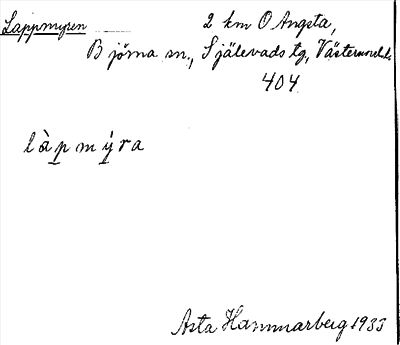 Lappmyren 2 km O Angsta,
Björna sn., Själevads tg, Västernorrl.
404
l à p m ý r a
Asta Hammarberg 1933